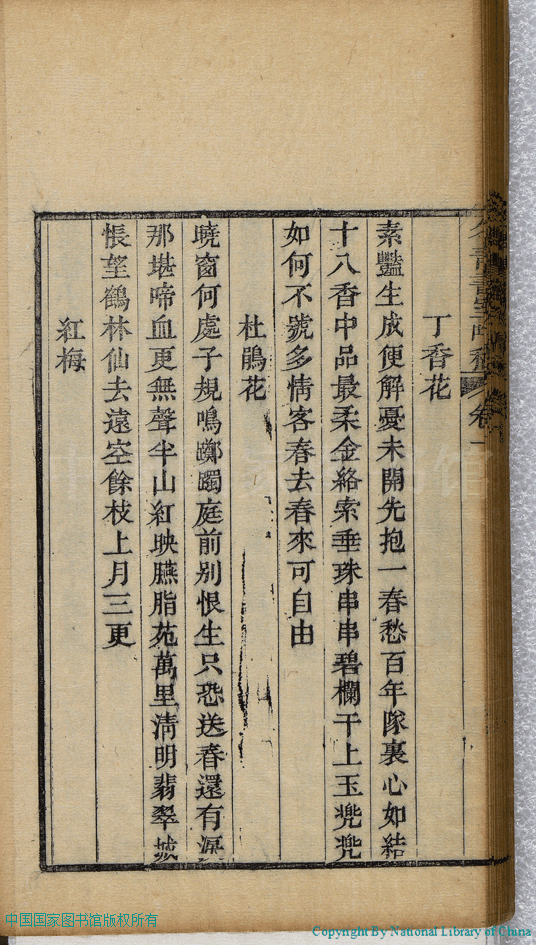 卷一
丁香花
素豔生成便解憂未開先抱一春愁百年隊裏心如結
十八香中品最柔金絡索垂珠串串碧欄干上玉兠兠
如何不號多情客春去春來可自由
杜鵑花
曉窗何處子規鳴躑躅庭前别恨生只恐送春還有淚
那堪啼血更無聲半山紅映臙脂苑萬里淸明翡翠城
悵望鶴林仙去遠空餘枝上月三更
紅梅
中国国家图书馆版权所有
Copyright By National Library of China